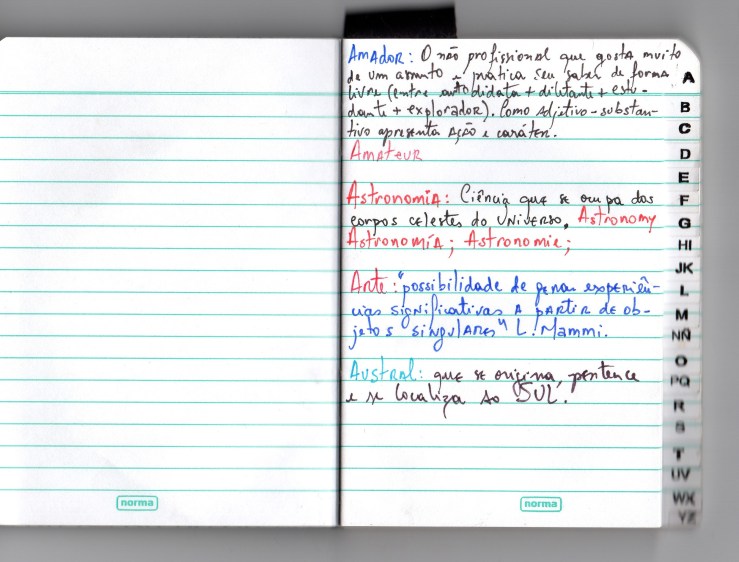 Amador: O não profissional que gosta muito
de um assunto e pratica seu saber de forma
livre (entre autodidata + diletante + estu-
dante + explorador). Como adjetivo-substan-
tivo apresenta ação e caráter.
Amateur
Astronomia: Ciência que se ocupa dos
corpos celestes do Universo. Astronomy
Astronomía; Astronomie;
Arte: "possibilidade de gerar experiên-
cias significativas a partir de ob-
jetos singulares" L. Mammi.
Austral: que se origina, pertence
e se localiza ao SUL.
A
B
C
D
E
F
G
HI
JK
L
M
NÑ
O
PQ
R
S
T
UV
WX
YZ
norma
norma